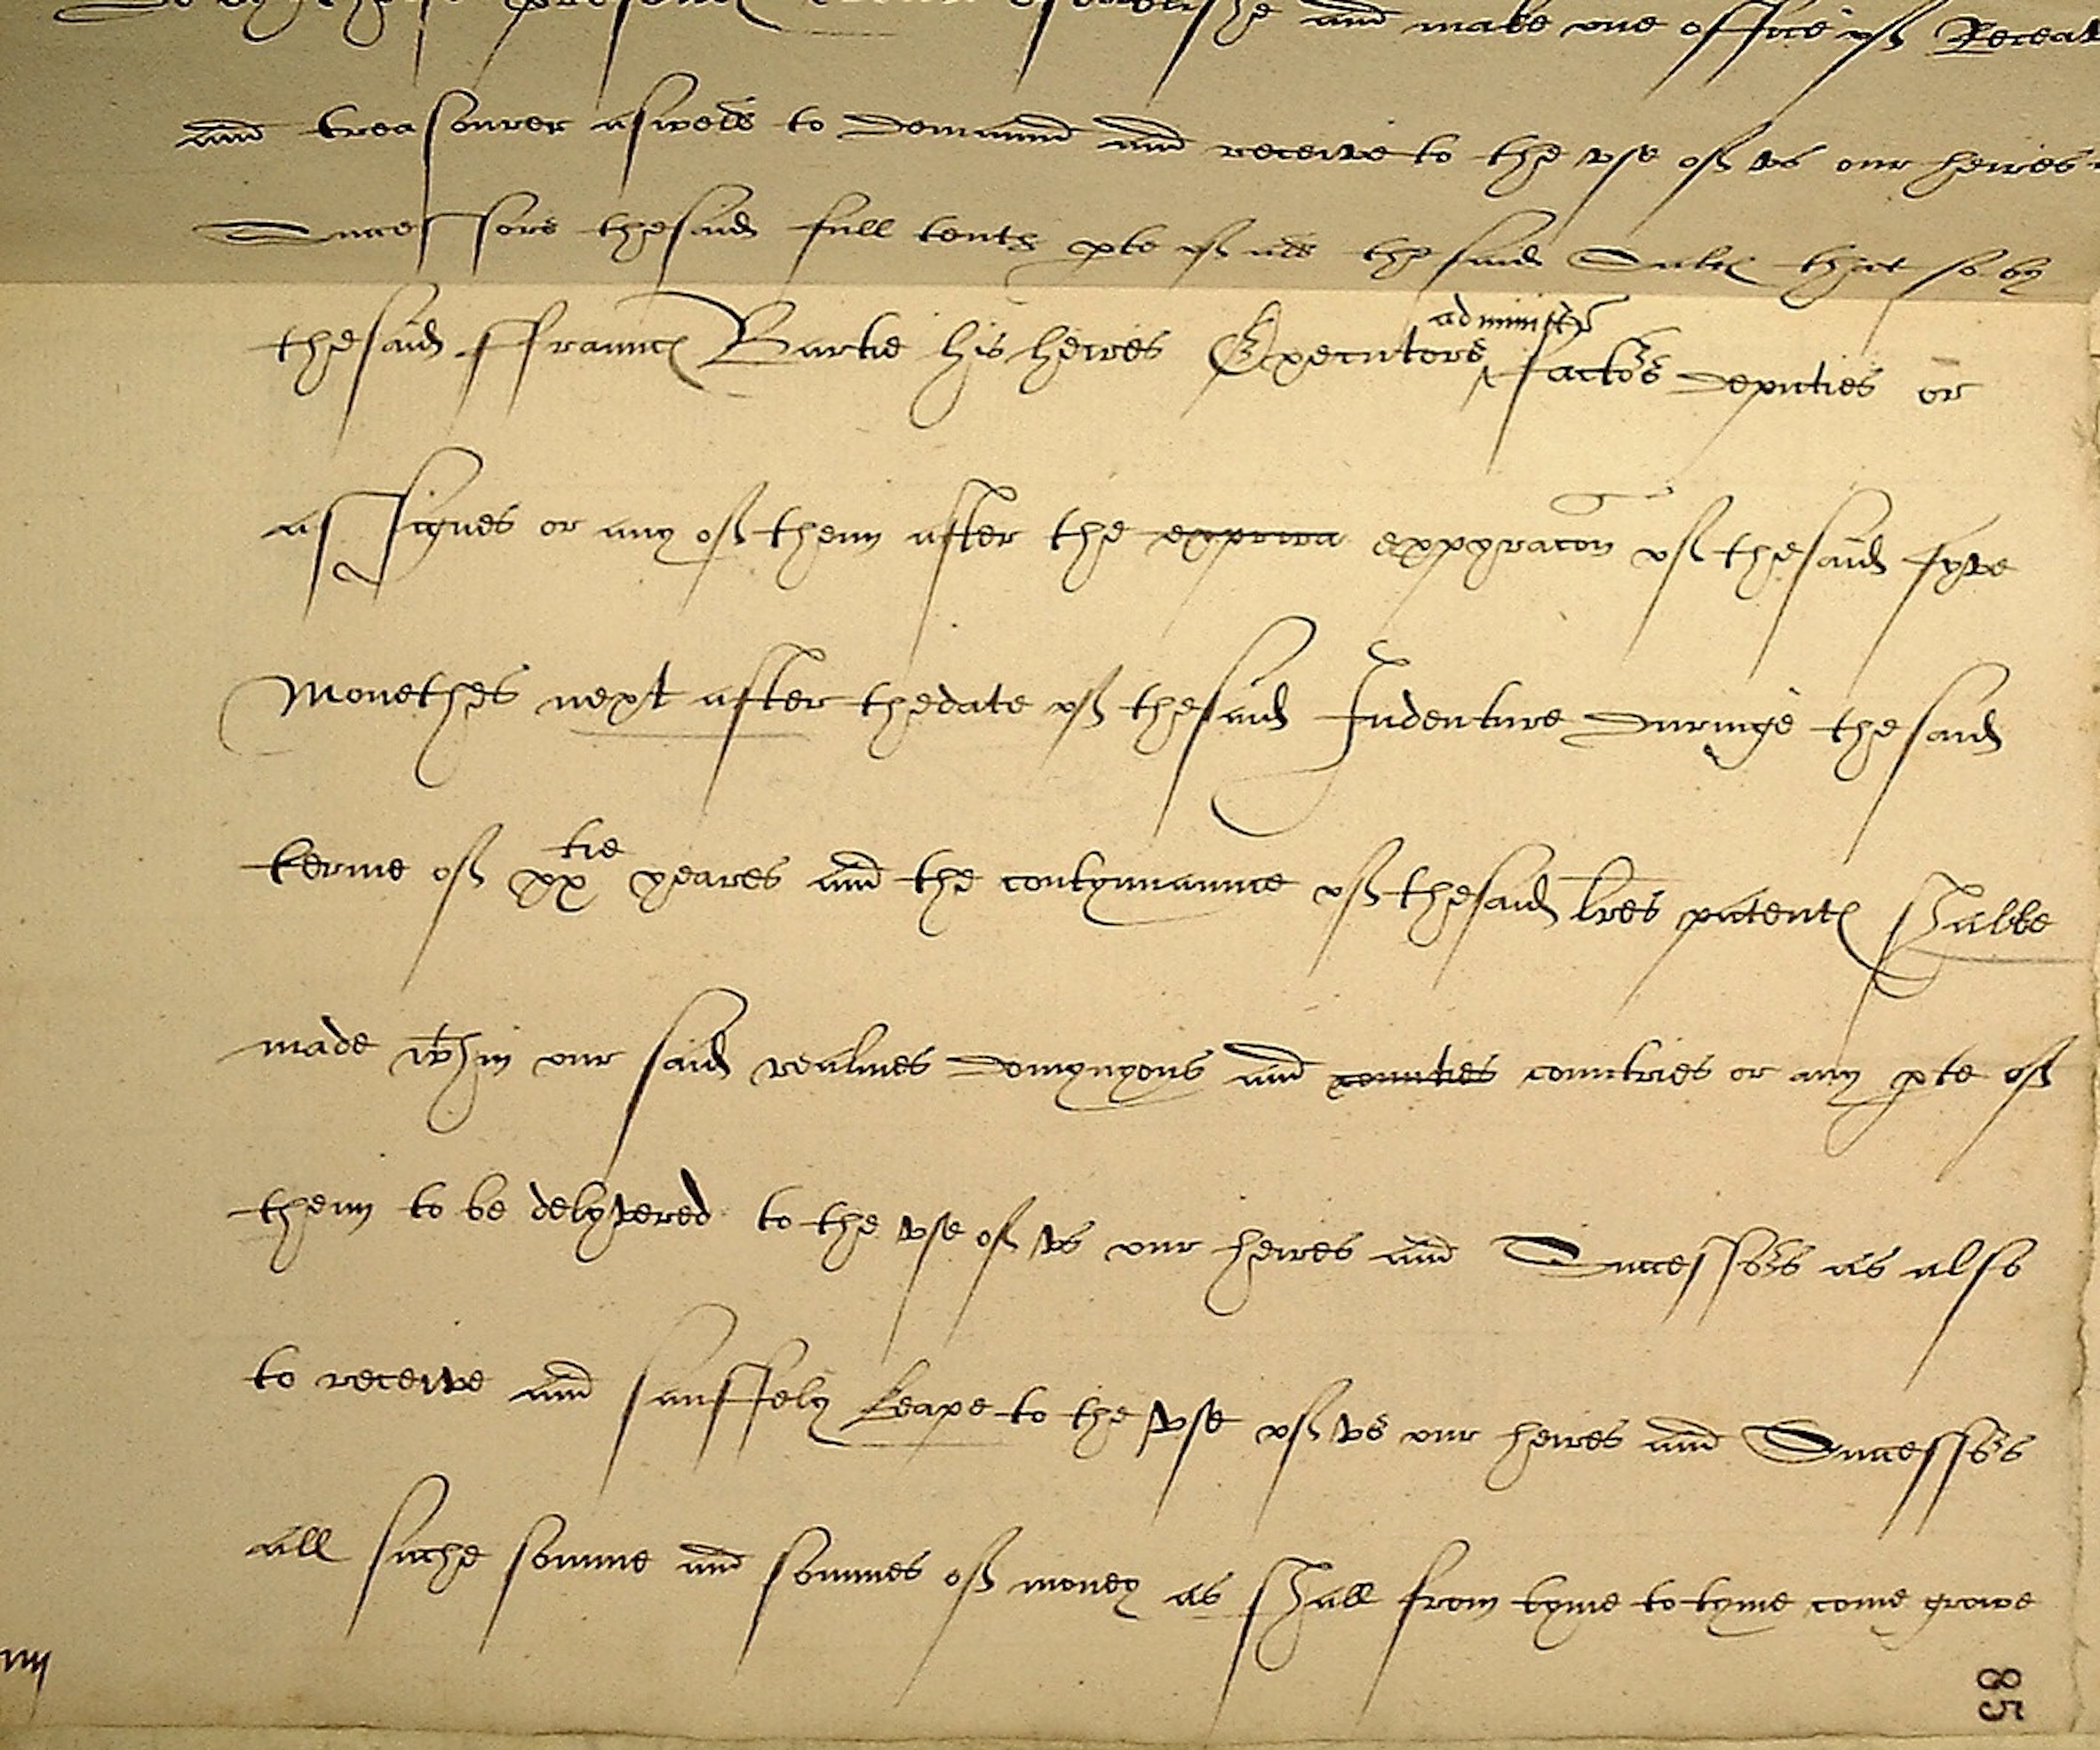 and make one office of Receav
and treasourer aswell to demaund and receive to the vse of vs our heires
Successors thesaid full tenth pte of all the said Salt that so by
thesaid ffraunc Bartie his heires Executors ^administr factors deputies or
assignes or any of them after the expira expyracon of thesaid fyve
Monethes next after thedate of thesaid Indenture duringe thesaid
terme of xxtie yeares and the contynuaunce of thesaid lres patent shalbe
made wthin our said realmes domynyons and counties countries or any pte of
them to be delyvered to the vse of vs our heires and Successors as also
to receive and sauffely keape to the vse of vs our heires and Successors
all suche somme and sommes of money as shall from tyme to tyme come growe
85